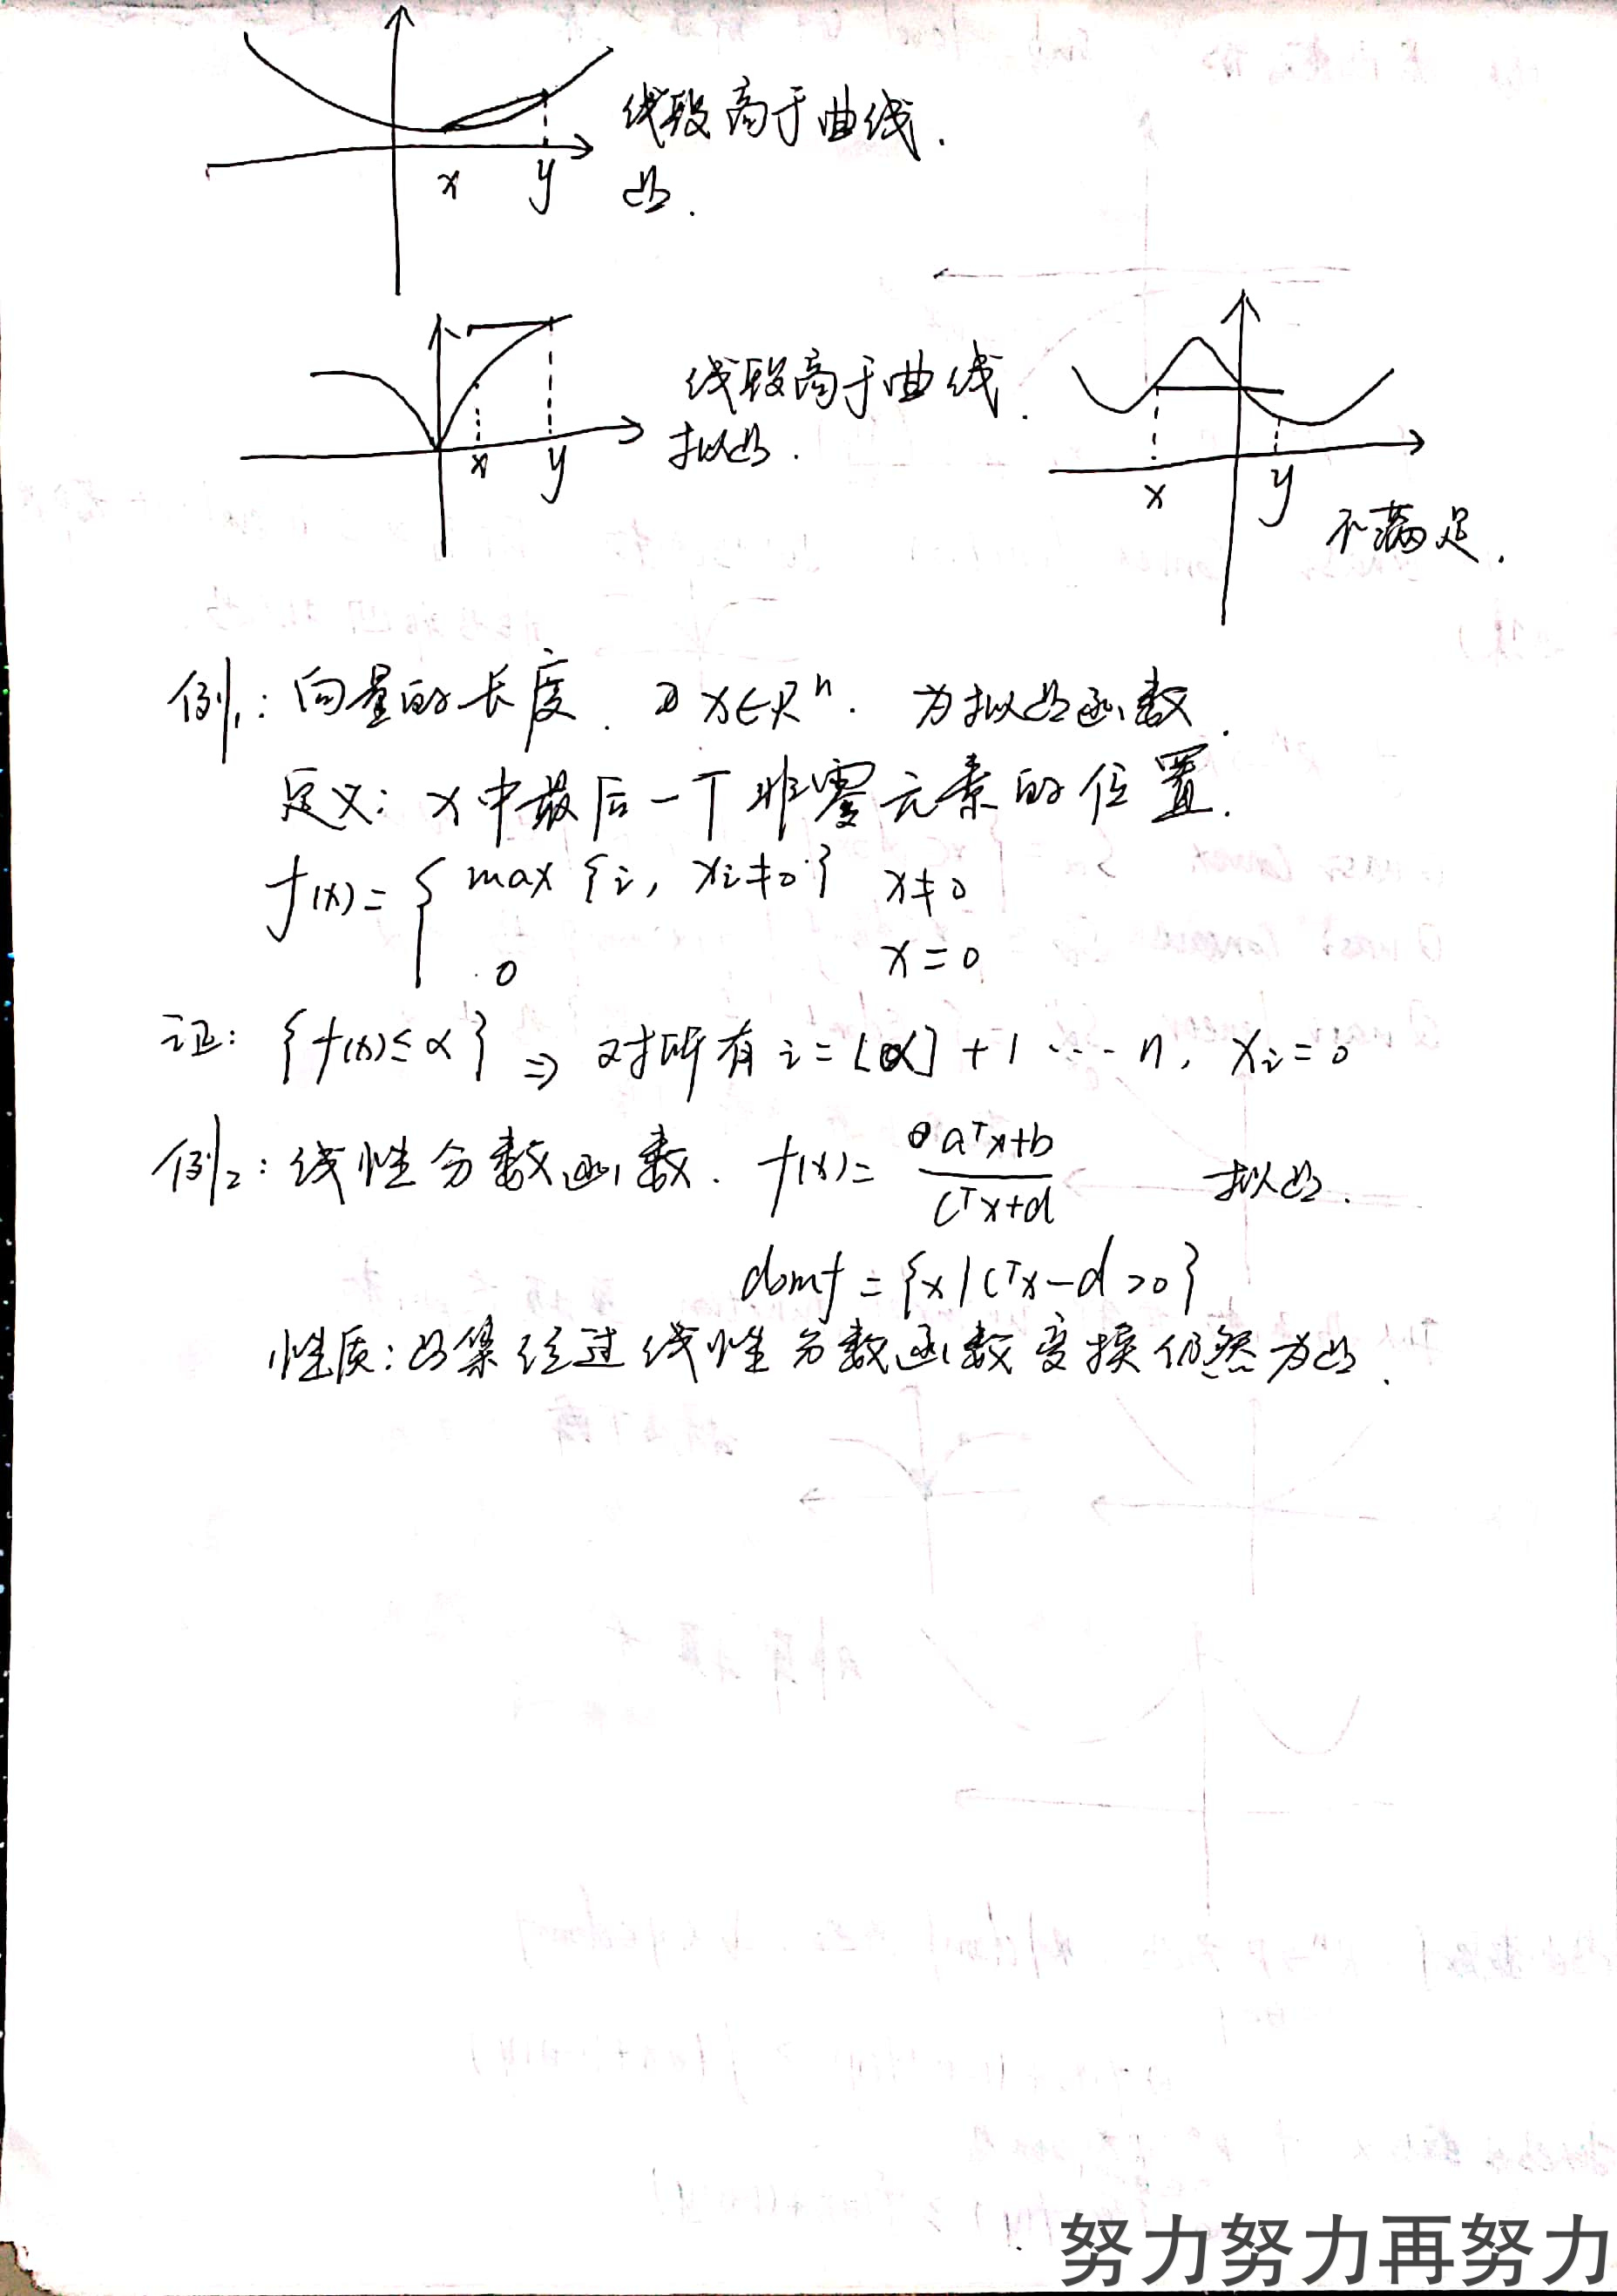 线段高于曲线.
x y 凸.
线段高于曲线.
x y 拟凸.
x y
不满足.
例1: 向量的长度. x∈Rⁿ. 为拟凸函数.
定义: x中最后一个非零元素的位置.
f(x)= { max {i, xi≠0} x≠0
0 x=0
证: {f(x)≤α} ⇒ 对所有 i=⌊α⌋+1 … n, xi=0
例2: 线性分数函数. f(x)= (aᵀx+b)/(cᵀx+d) 拟凸.
domf = {x|cᵀx-d>0}
性质: 凸集经过线性分数函数变换仍然为凸.
努力努力再努力